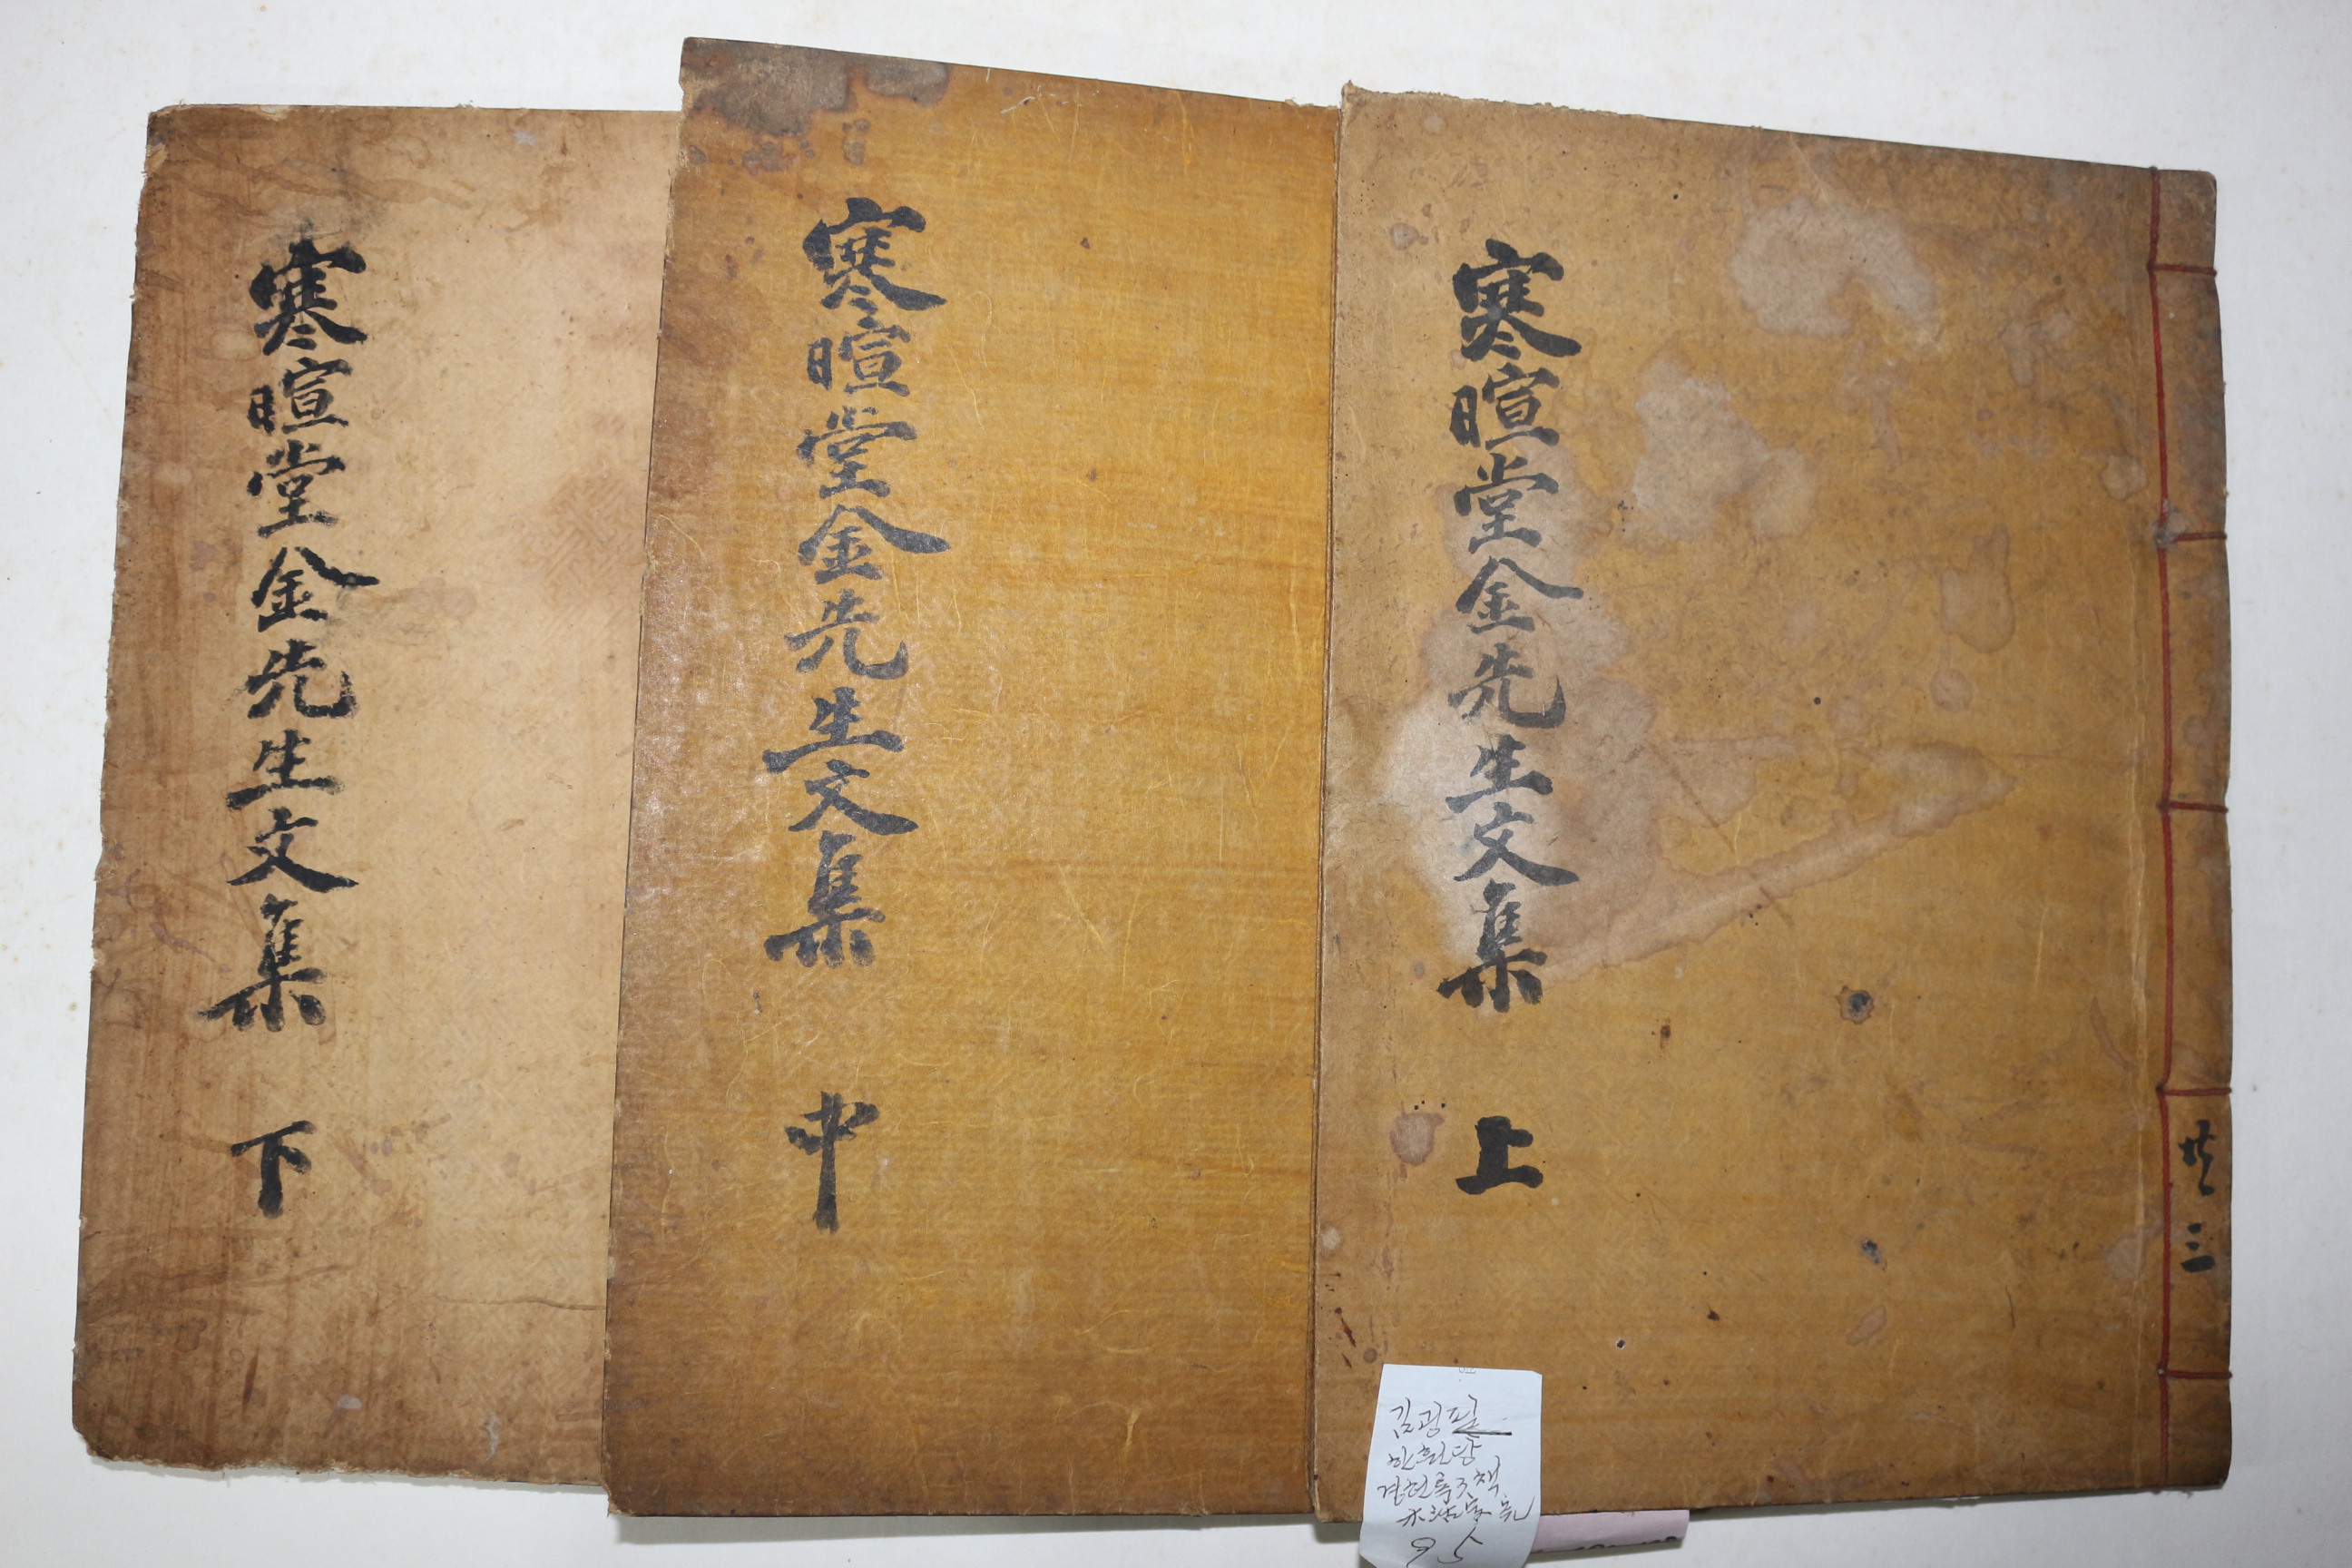 寒暄堂金先生文集 上
共三
寒暄堂金先生文集 中
寒暄堂金先生文集 下
김굉필
한훤당
95